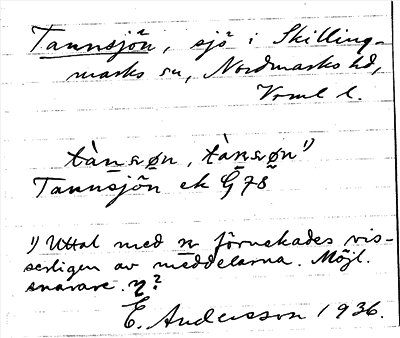 Tannsjön, sjö i Skilling-
marks sn, Nordmarks hd,
Vrml l.
tàn̲ɛøn, tàn̲ɛøn¹⁾
Tannsjön ek G 78
1) Uttal med n förnekades vis-
serligen av meddelarna. Möjl.
snarare η?
E. Andersson 1936.